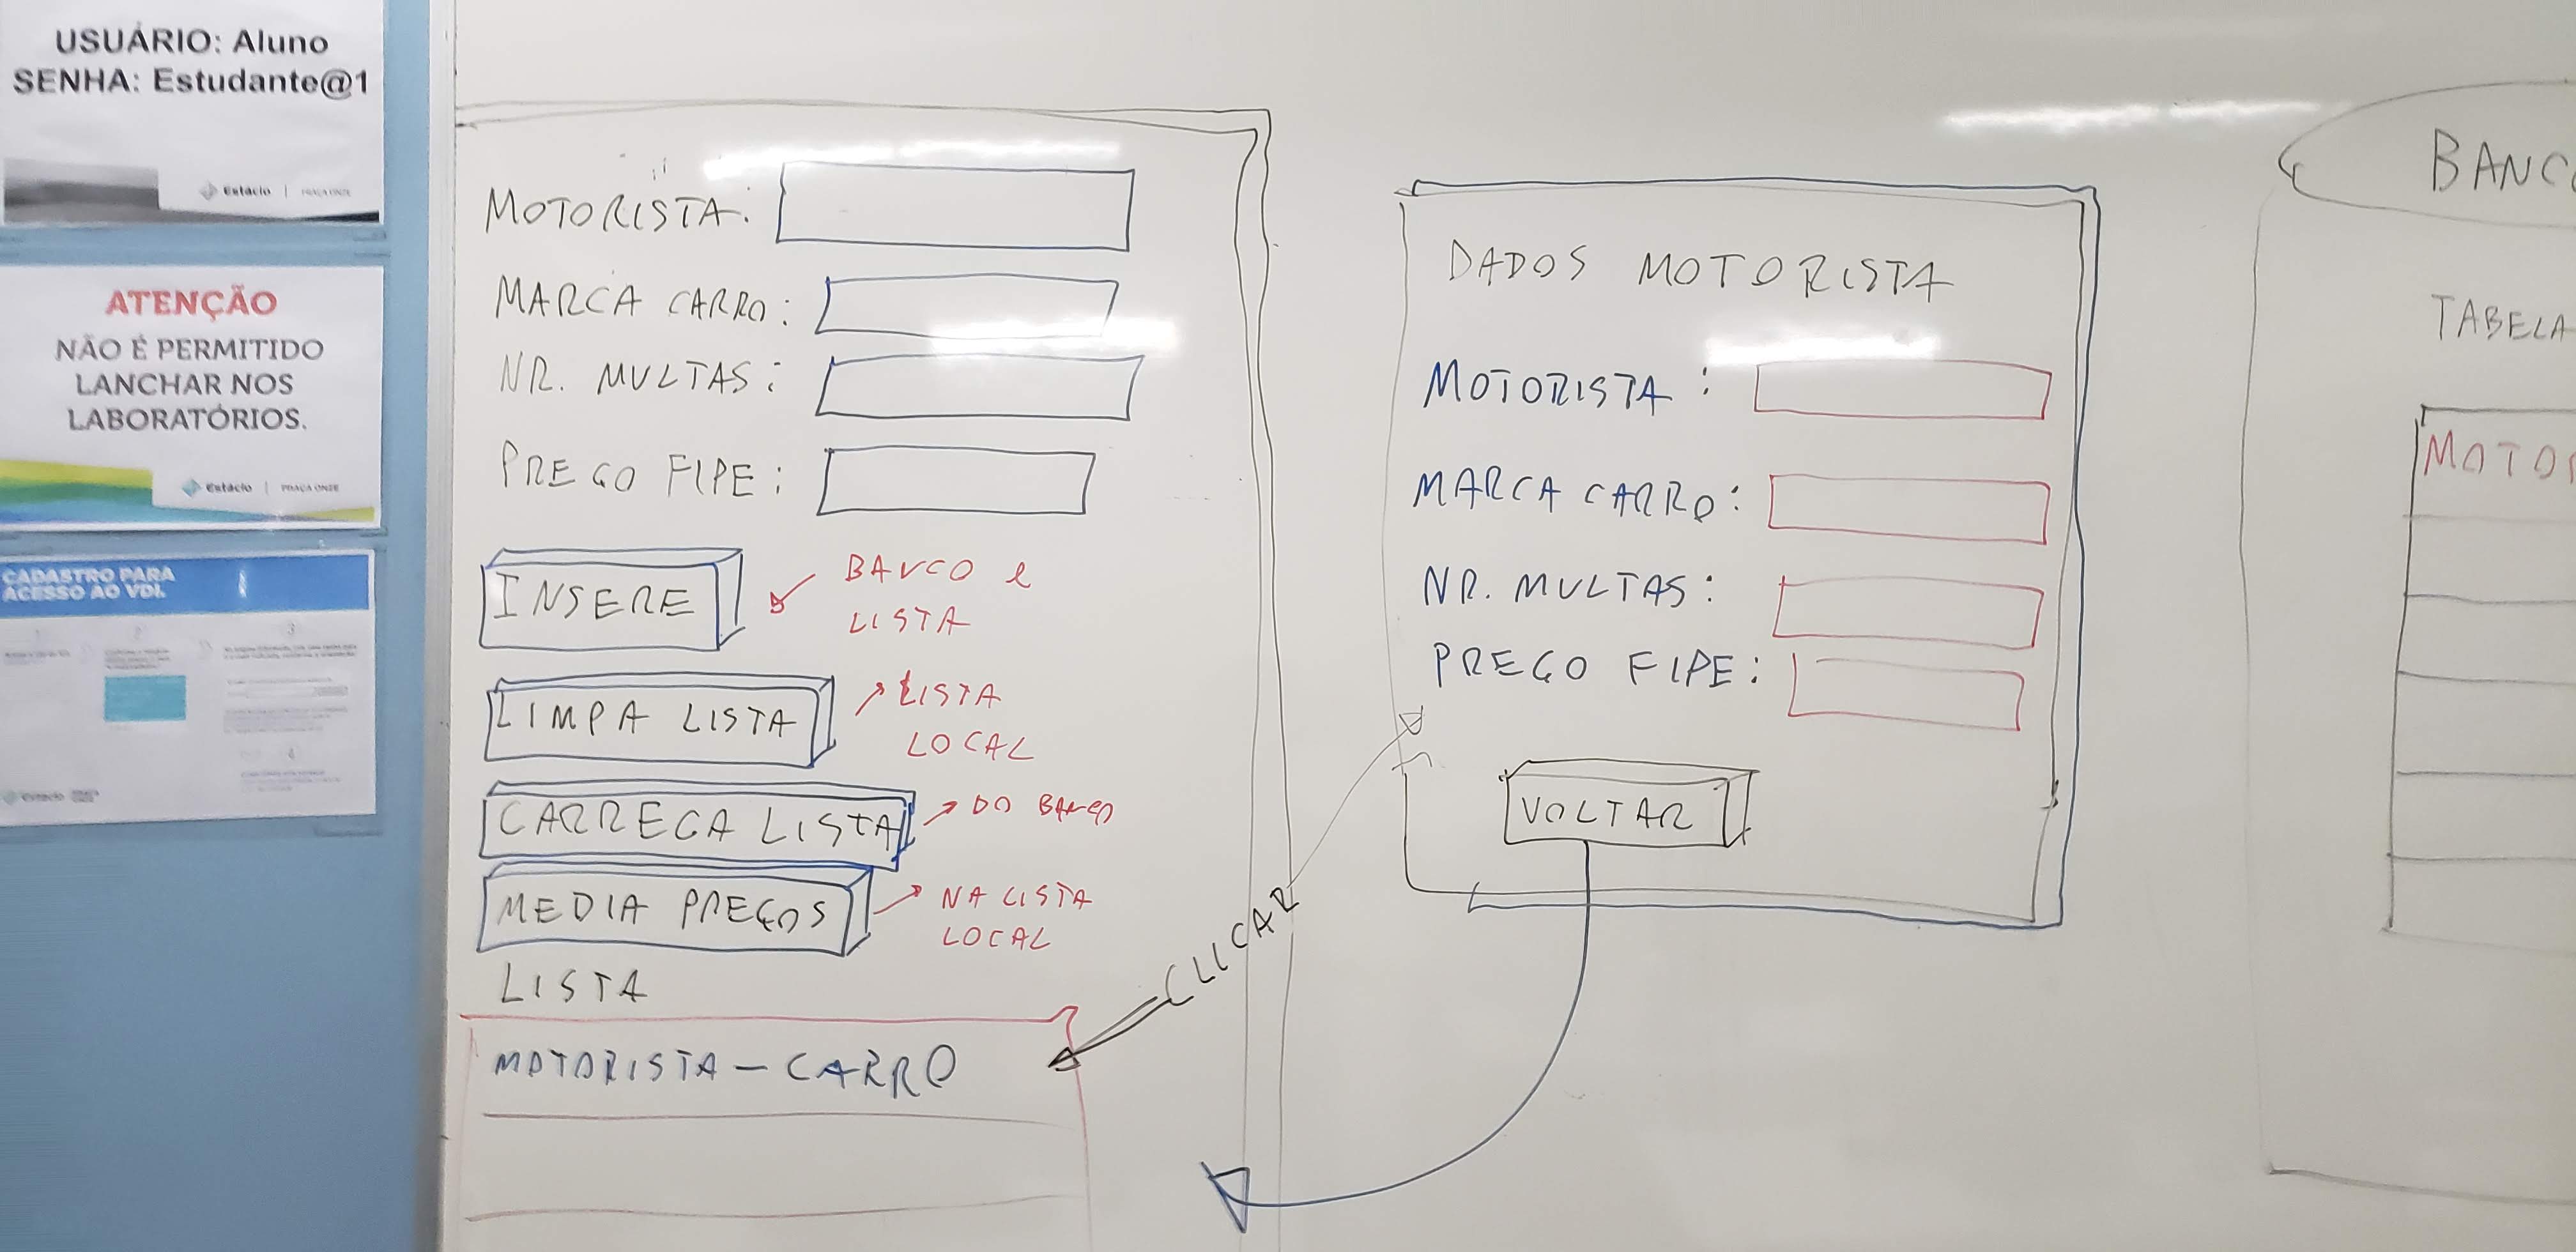 USUÁRIO: Aluno
SENHA: Estudante@1
Estácio | PRAÇA ONZE
ATENÇÃO
NÃO É PERMITIDO
LANCHAR NOS
LABORATÓRIOS.
Estácio | PRAÇA ONZE
CADASTRO PARA
ACESSO AO VDI.
1
2
3
4
Estácio
MOTORISTA:
MARCA CARRO:
NR. MULTAS:
PREÇO FIPE:
INSERE
BANCO e
LISTA
LIMPA LISTA
LISTA
LOCAL
CARREGA LISTA
DO BANCO
MEDIA PREÇOS
NA LISTA
LOCAL
LISTA
MOTORISTA - CARRO
CLICAR
DADOS MOTORISTA
MOTORISTA:
MARCA CARRO:
NR. MULTAS:
PREÇO FIPE:
VOLTAR
BANC
TABELA
MOTOR